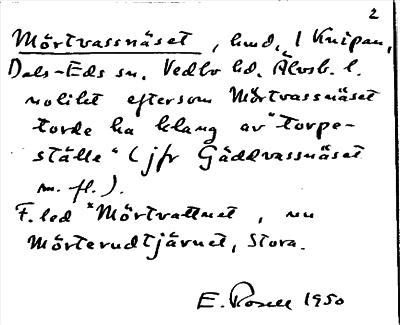 2
Mörtvassnäset, hmd, / Knipan,
Dals-Eds sn. Vedbo hd. Älvsb. l.
nolikt eftersom Mörtvassnäset
torde ha klang av "torpe-
ställe" (jfr Gäddvassnäset
m. fl.).
F. led *Mörtvattnet, nu
Mörterudtjärnet, Stora.
E. Rosell 1950